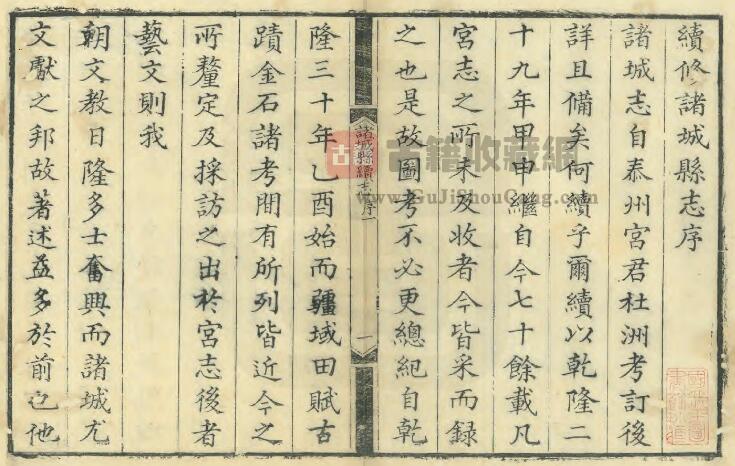 續修諸城縣志序
諸城志自泰州宮君杜洲考訂後
詳且備矣何續乎爾續以乾隆二
十九年甲申繼自今七十餘載凡
宮志之所未及收者今皆采而録
之也是故圖考不必更總紀自乾
諸城縣續志序一
一
隆三十年乙酉始而疆域田賦古
蹟金石諸考間有所列皆近今之
所釐定及採訪之出於宮志後者
藝文則我
朝文教日隆多士奮興而諸城尤
文獻之邦故著述益多於前也他
古籍
古籍收藏網
www.GuJiShouCang.com